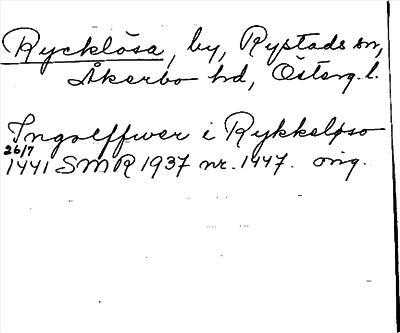 Rycklösa, by, Rystads sn,
Åkerbo hd, Österg. l.
Ingolffwer i Rykkelpso
26/7
1441 SMR 1937 nr. 1447. orig.